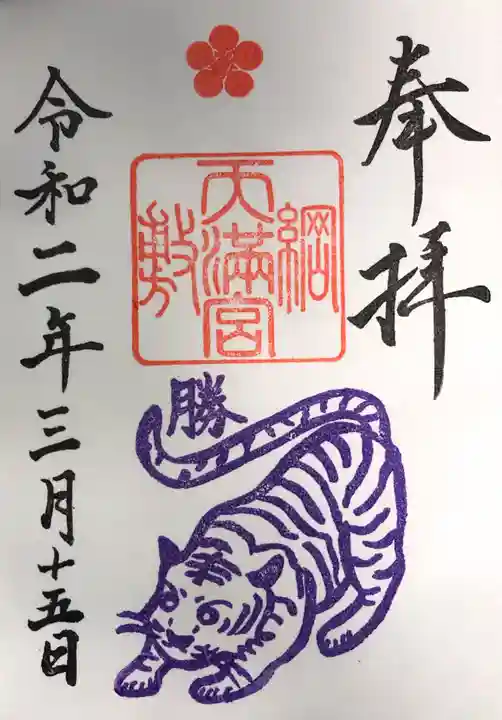 奉拝
綱敷天満宮
勝
令和二年三月十五日